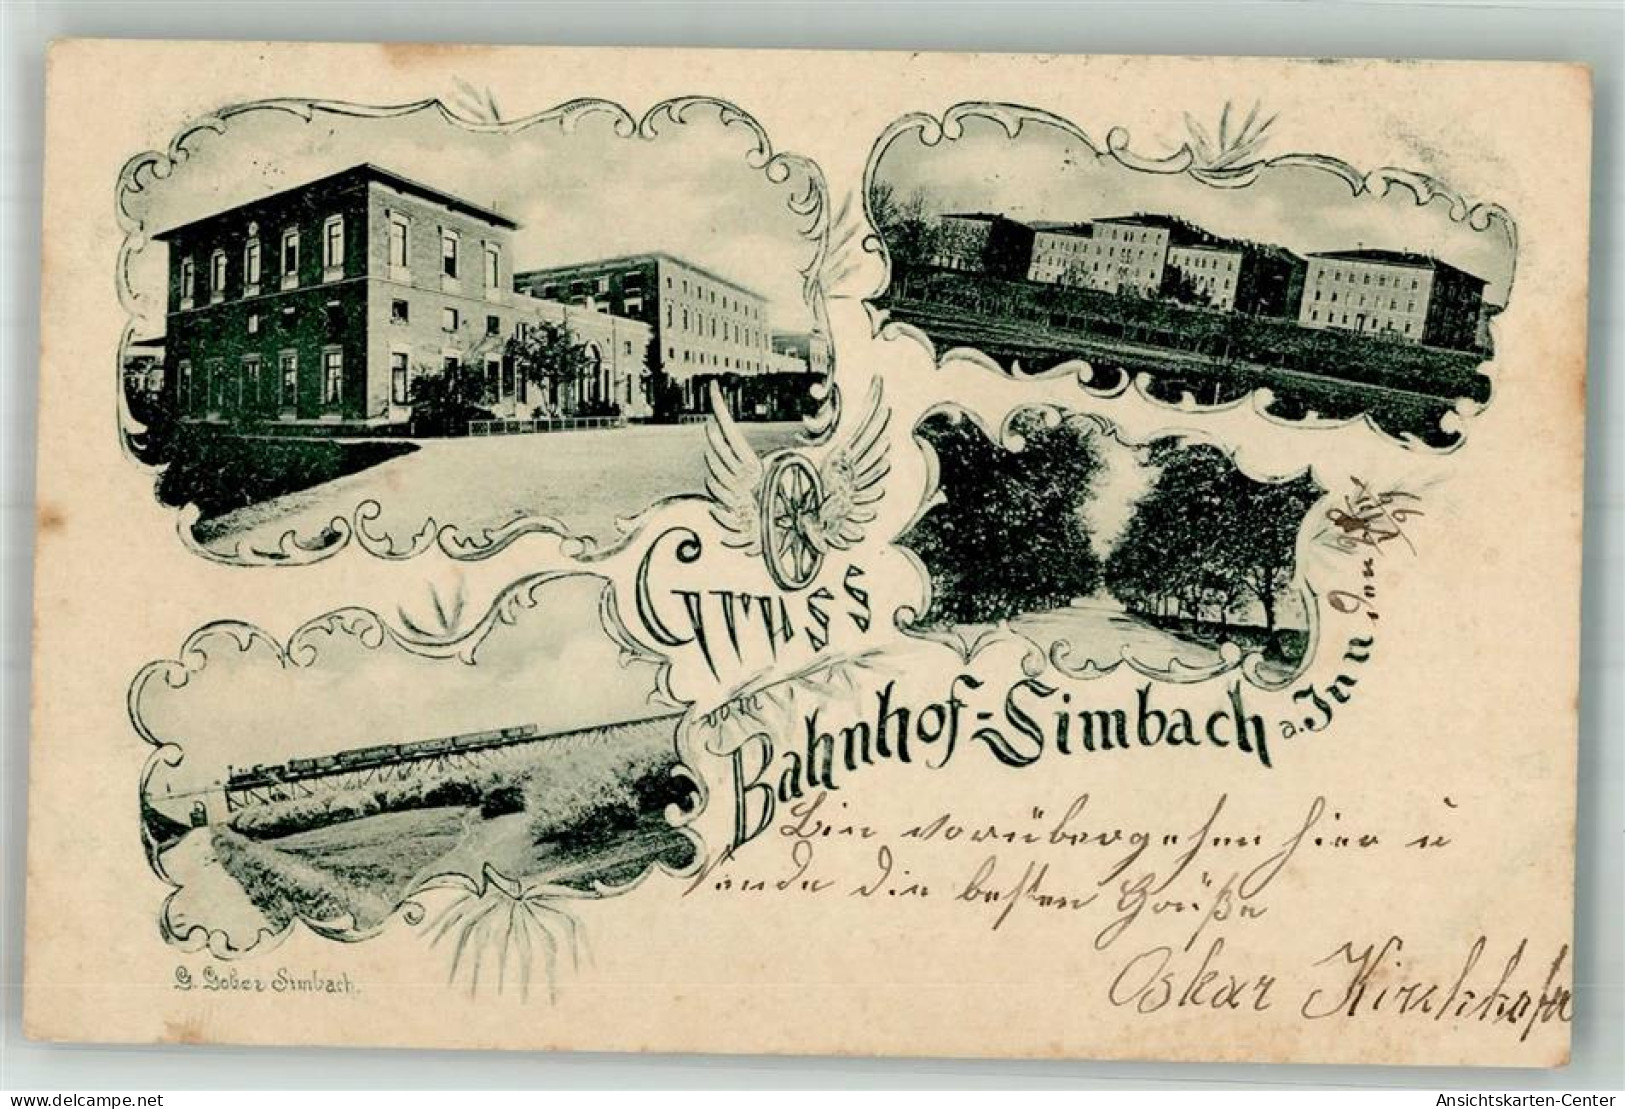 Gruss
vom
Bahnhof-Simbach a. Inn
den
99
Bin vorübergehen hier u
sende die besten Grüße
Oskar Kirchhofer
G. Gober Simbach.
www.delcampe.net
Ansichtskarten-Center